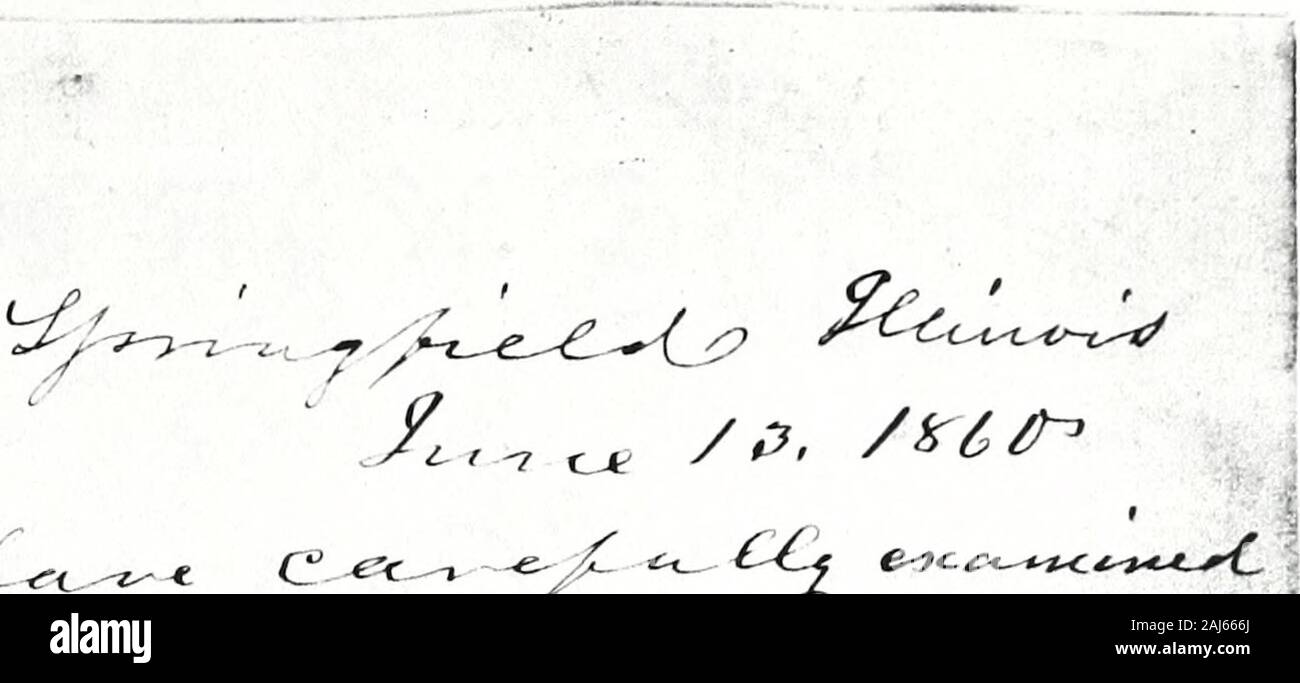 Springfield Illinois
June 13. 1860
have carefully examined
alamy
Image ID: 2AJ666J
www.alamy.com